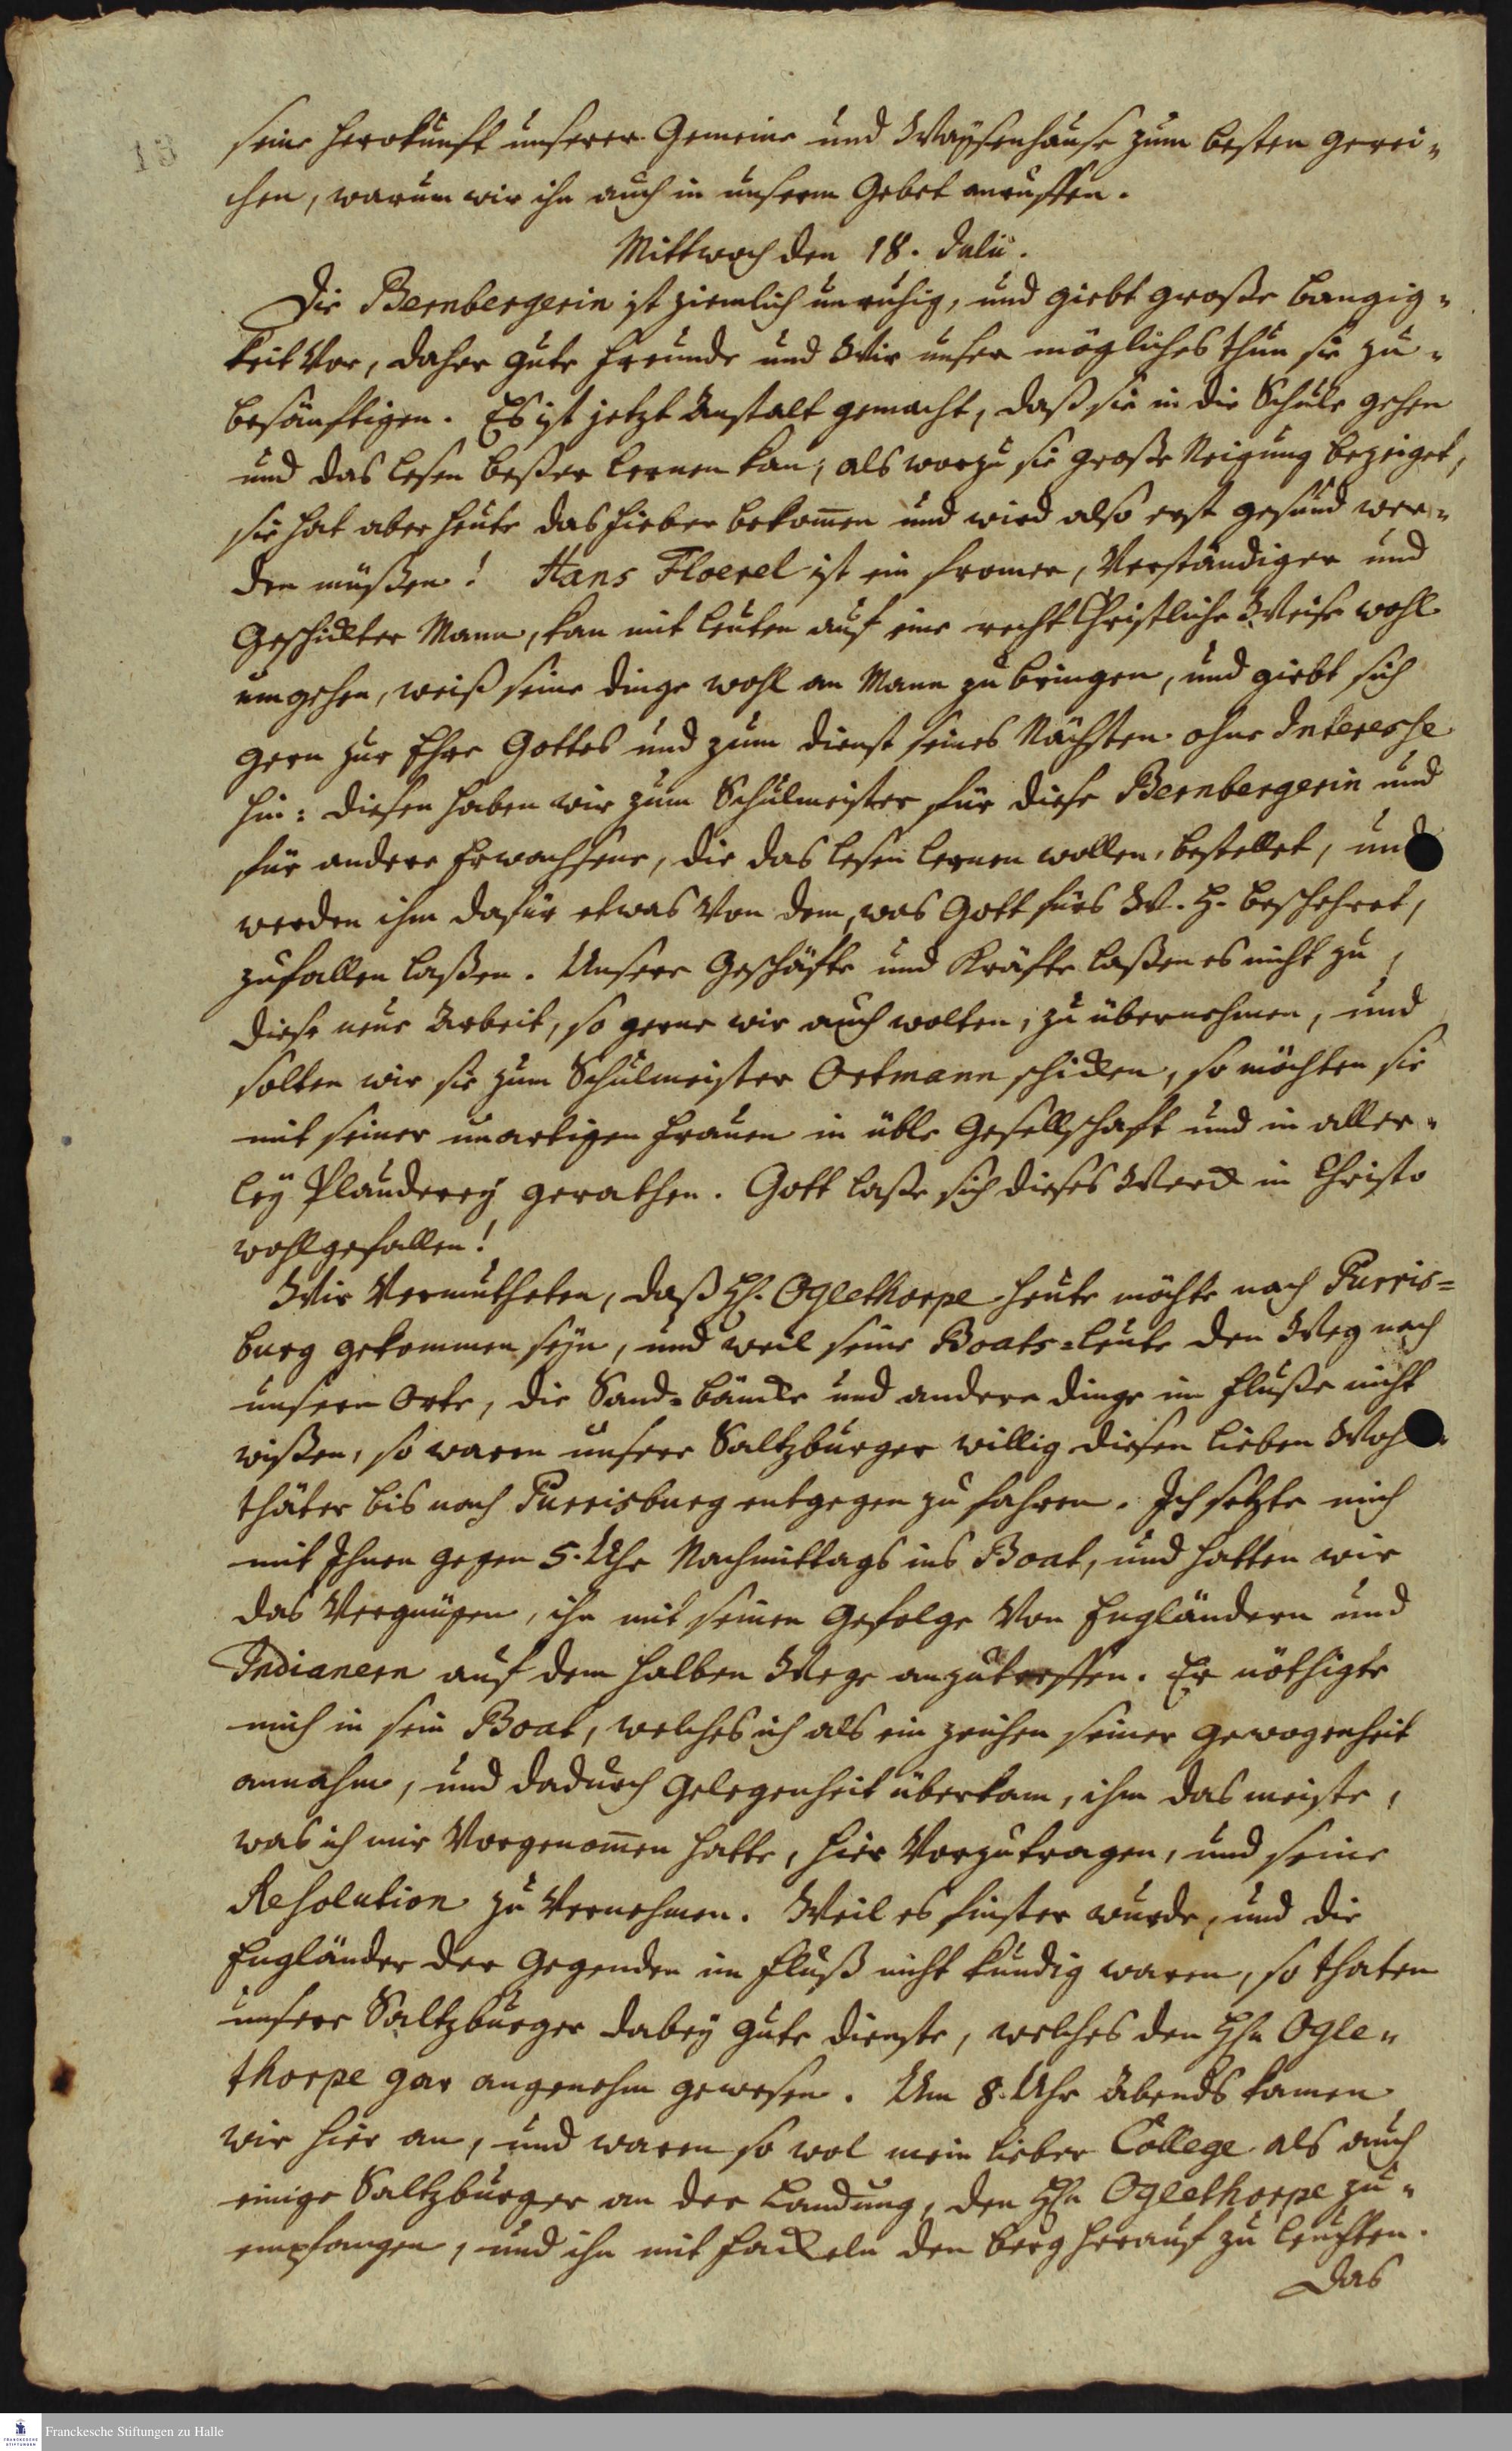 seine Herokunft unserer Gemeine und Waysenhause zum besten gerei-
chen, warum wir ihn auch in unserm Gebet anruffen.
Mittwoch den 18. Julii.
Die Bernbergerin ist ziemlich unruhig, und giebt große Bangig-
keit vor, daher gute Freunde und Wir unser mögliches thun sie zu-
besänftigen. Es ist jetzt Anstalt gemacht, daß sie in die Schule gehen
und das Lesen beßer lernen kan, als worzu sie große Neigung bezeiget,
sie hat aber heute das Fieber bekom̄en und wird also erst gesund wer-
den müßen! Hans Floerel ist ein fromer, Verständiger und
Geschickter Mann, kan mit Leuten auf eine recht Christliche Weise wohl
umgehen, weiß seine Dinge wohl an Mann zu bringen, und giebt sich
gern zur Ehre Gottes und zum Dienst seines Nächsten ohne Interesse
hin: diesen haben wir zum Schulmeister für diese Bernbergerin und
für andere Erwachsene, die das Lesen lernen wollen, bestellet, und
werden ihm dafür etwas Von dem, was Gott fürs W. H. beschehret,
zufallen laßen. Unsere Geschäfte und Kräfte laßen es nicht zu,
diese neue Arbeit, so gerne wir auch wolten, zu übernehmen, und
solten wir sie zum Schulmeister Ortmann schicken, so möchten sie
mit seiner unartigen Frauen in üble Gesellschaft und in aller-
ley Plauderey gerathen. Gott laße sich dieses Werck in Christo
wohlgefallen!
Wir Vermutheten, daß H. Oglethorpe heute möchte nach Purris=
burg gekommen seyn, und weil seine Boats=Leute den Weg nach
unserm Orte, die Sand=Bäncke und andere Dinge im Fluße nicht
wißen, so waren unsere Saltzburger willig diesen lieben Wohl-
thäter bis nach Purrisburg entgegen zu fahren. Ich setzte mich
mit Ihnen gegen 5. Uhr Nachmittags ins Boat, und hatten wir
das Vergnügen, ihn mit seinen Gefolge Von Engländern und
Indianern auf dem halben Wege anzutreffen. Er nöthigte
mich in sein Boat, welches ich als ein Zeichen seiner Gewogenheit
annahm, und dadurch Gelegenheit überkam, ihm das meiste,
was ich mir Vorgenom̄en hatte, hier Vorzutragen, und seine
Resolution zu Vernehmen. Weil es finster wurde, und die
Engländer der Gegenden im Fluß nicht kundig waren, so thaten
unsere Saltzburger dabey gute Dienste, welches den Hn Ogle-
thorpe gar angenehm gewesen. Um 8. Uhr Abends kamen
wir hier an, und waren so wol mein lieber College als auch
einige Saltzburger an der Landung, den Hn Oglethorpe zu-
empfangen, und ihn mit Fackeln den Berg herauf zu leuchten.
Das
Franckesche Stiftungen zu Halle
FRANCKESCHE
STIFTUNGEN